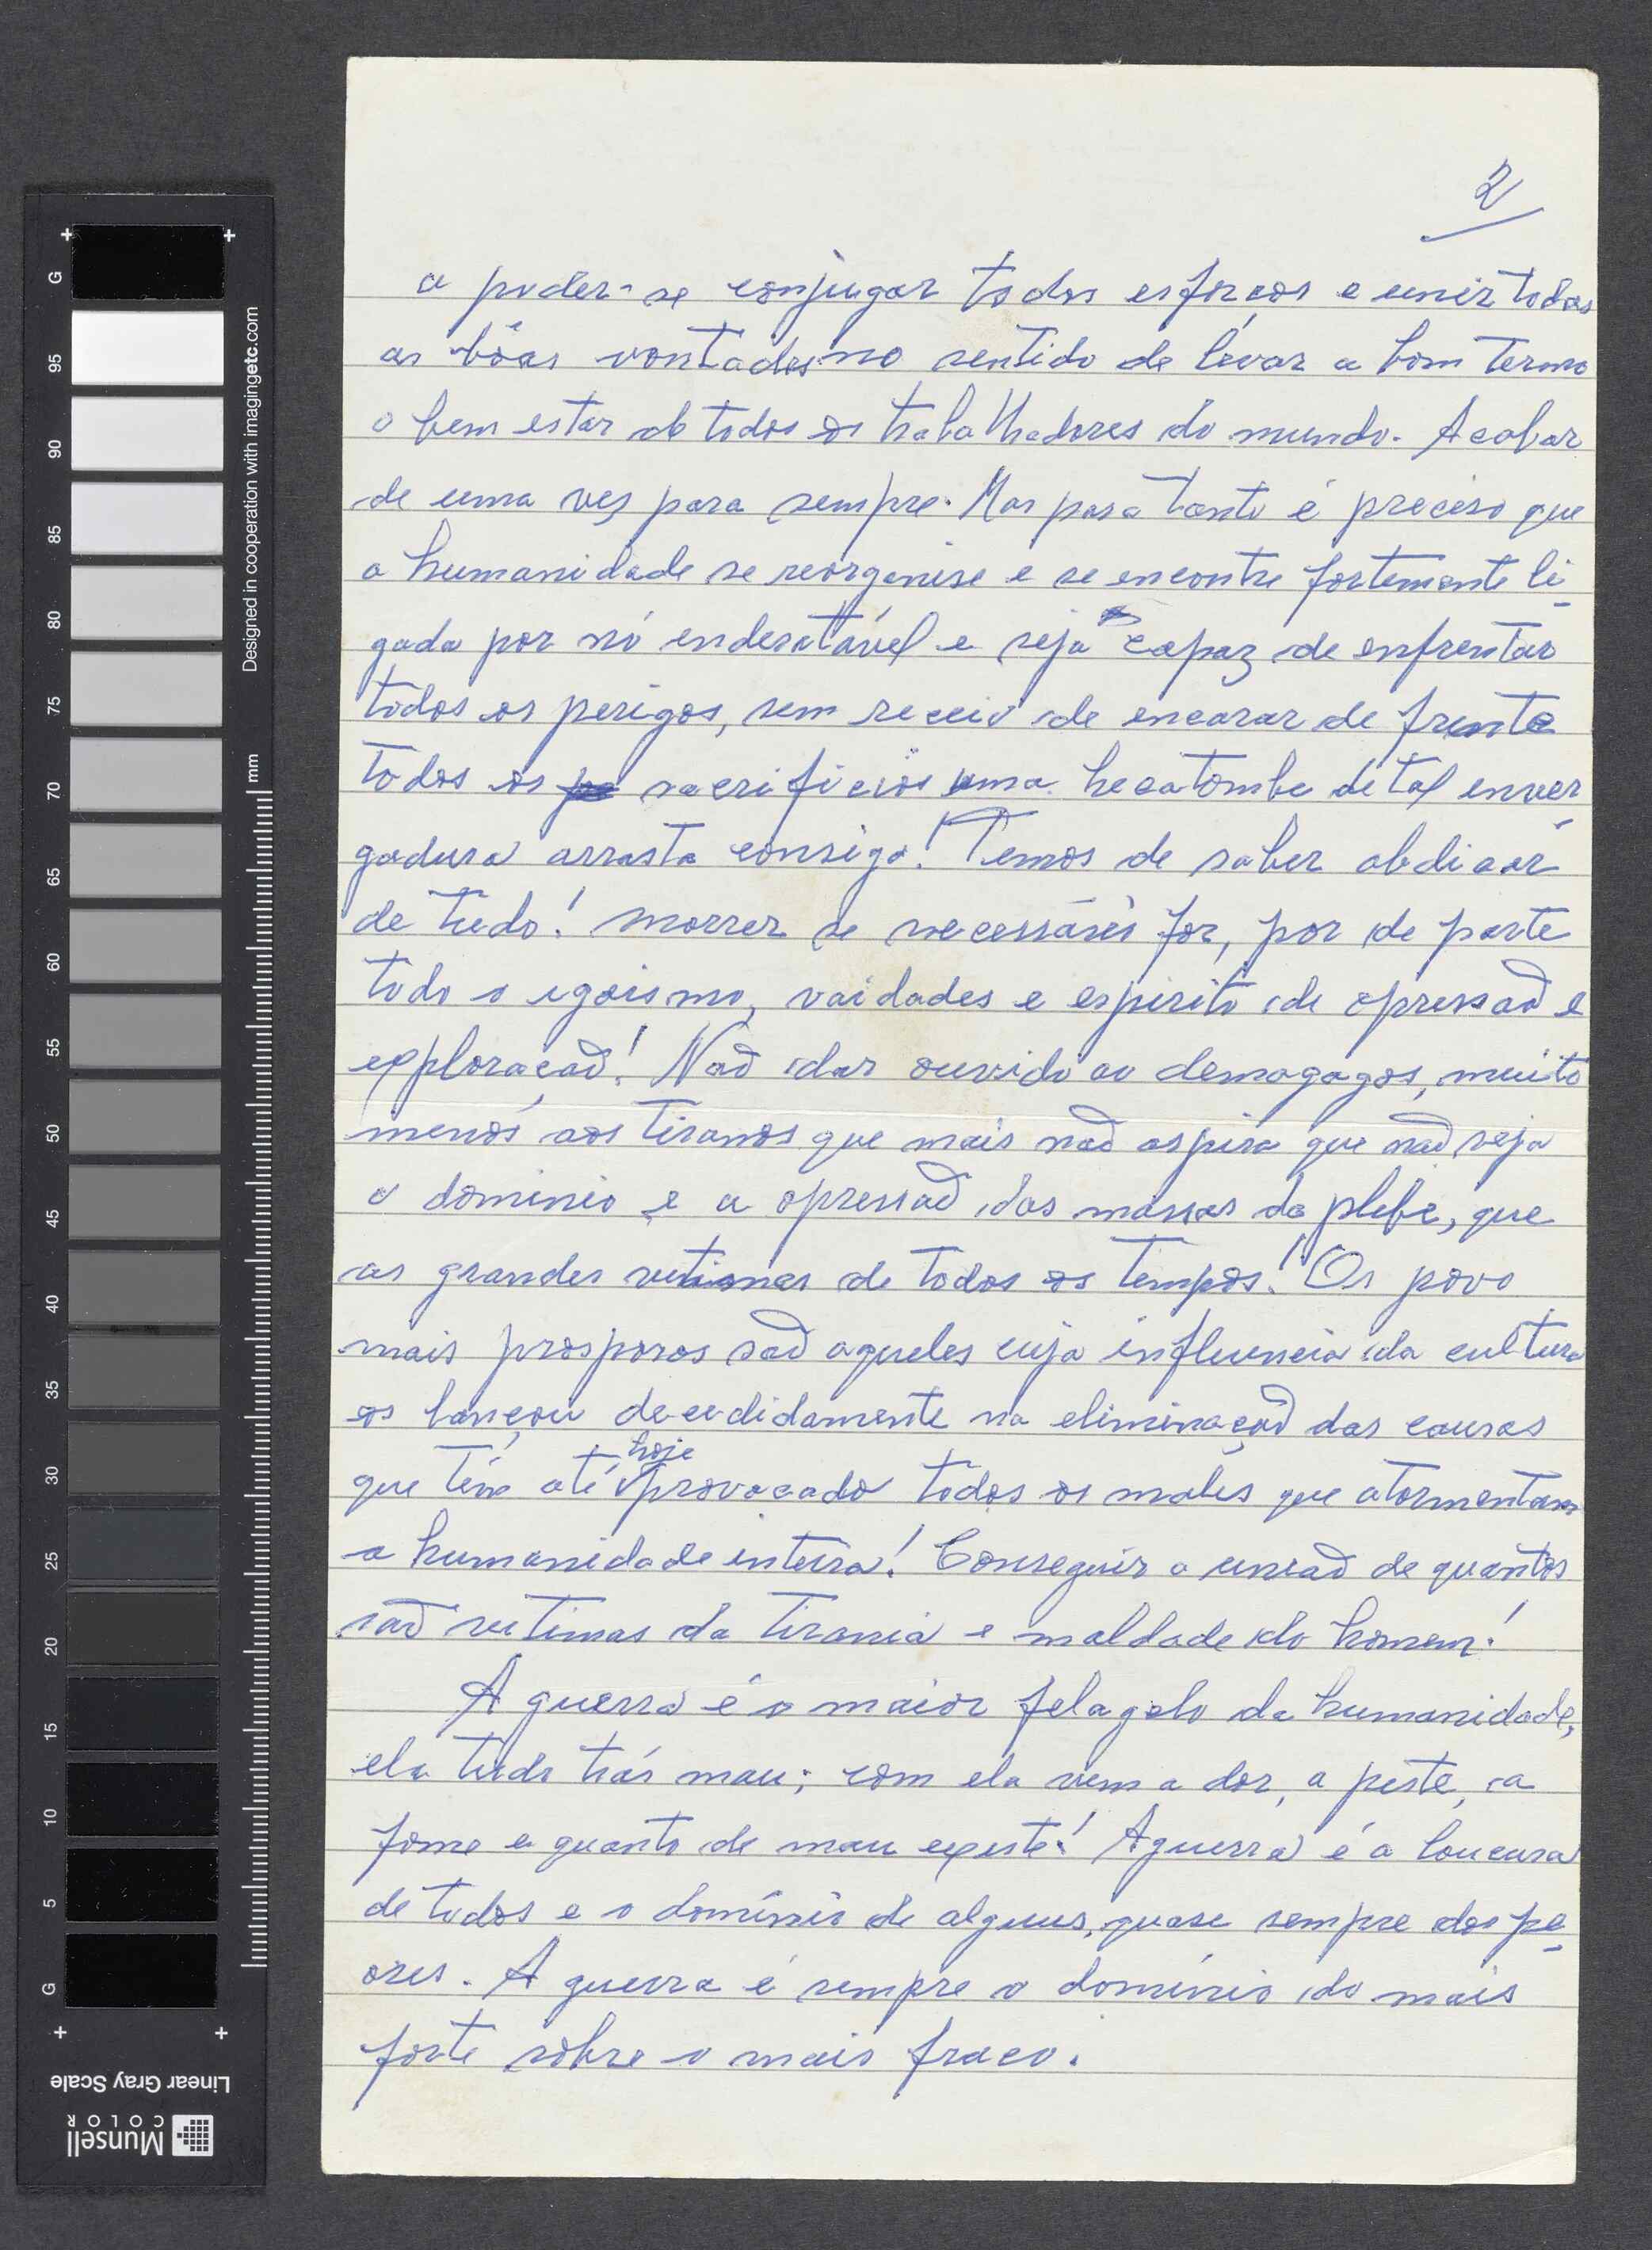 2
a puder-se conjugar todos esforços e unir todas
as bôas vontades no sentido de levar a bom termo
o bem estar de todos os trabalhadores do mundo. Acabar
de uma ves para sempre. Mas para tanto é preciso que
a humanidade se reorganise e se encontre fortemente li-
gada por nó endesatável e seja capaz de enfrentar
todos os perigos, sem receio de encarar de frente
todos os sacrificios uma hecatombe de tal enver-
gadura arrasta consigo! Temos de saber abdicar
de tudo! morrer se necessário for, por de parte
todo o egoismo, vaidades e espirito de opressaõ e
exploraçaõ! Naõ dar ouvido ao demagogos, muito
menos aos tiranos que mais naõ aspira que naõ seja
o dominio e a opressaõ das massas da plebe, que
as grandes vitimas de todos os tempos! Os povo
mais prosporos saõ aqueles cuja influencia da cultura
os lançou decedidamente na eliminaçaõ das causas
que têm até hoje provocado todos os males que atormentam
a humanidade inteira! Conseguir a uniaõ de quantos
saõ vitimas da tirania e maldade do homem!
A guerra é o maior felagelo da humanidade,
ela tudo trás mau; com ela vem a dor, a peste, a
fome e quanto de mau existe! A guerra é a loucura
de todos e o domínio de alguns, quase sempre dos pe-
ores. A guerra é sempre o domínio do mais
forte sobre o mais fraco.
Designed in cooperation with imagingetc.com
mm
G
95
90
85
80
75
70
65
60
55
50
45
40
35
30
25
20
15
10
5
G
Linear Gray Scale
Munsell
COLOR